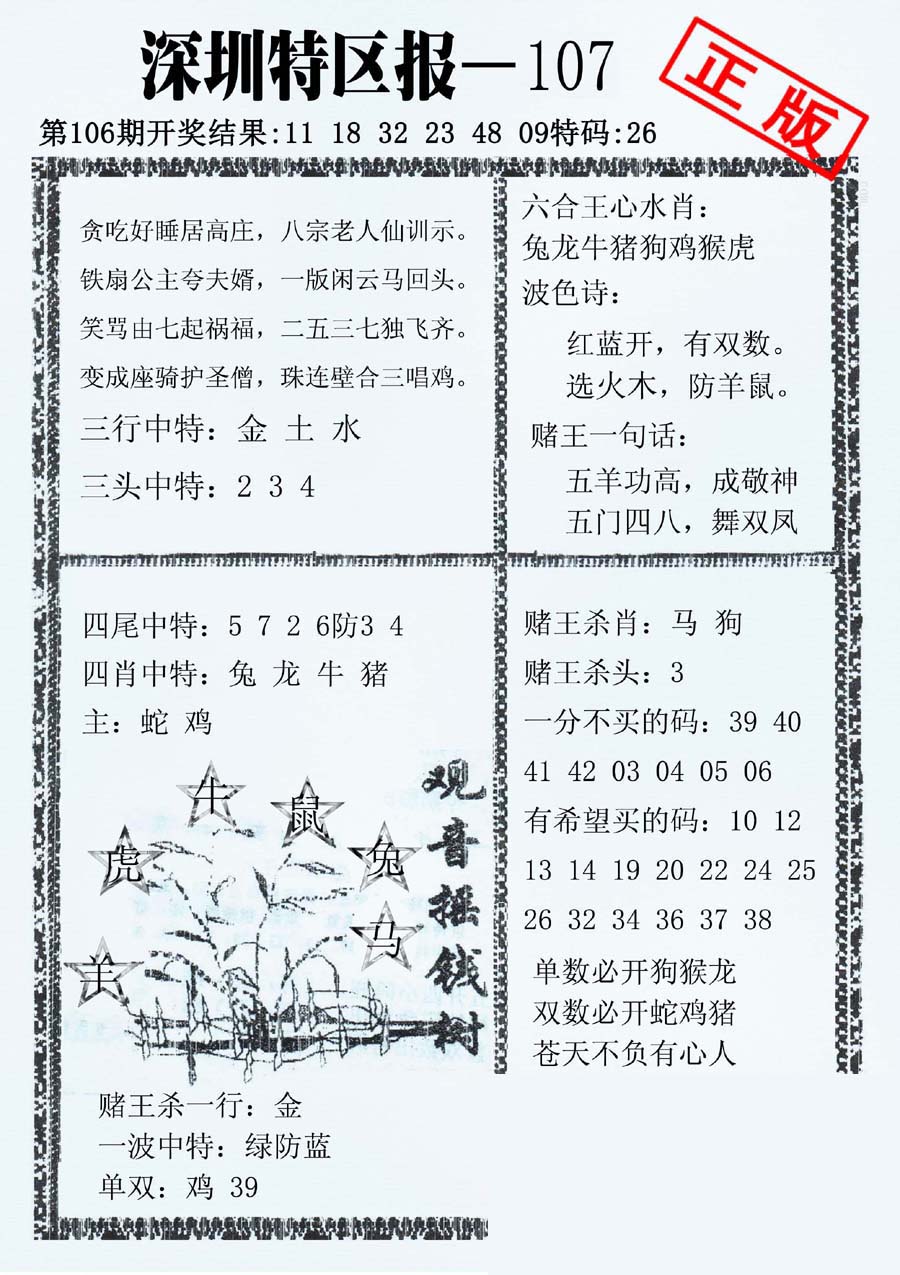 深圳特区报—107
正版
第106期开奖结果:11 18 32 23 48 09特码:26
贪吃好睡居高庄，八宗老人仙训示。
铁扇公主夸夫婿，一版闲云马回头。
笑骂由七起祸福，二五三七独飞齐。
变成座骑护圣僧，珠连壁合三唱鸡。
三行中特：金 土 水
三头中特：2 3 4
六合王心水肖：
兔龙牛猪狗鸡猴虎
波色诗：
红蓝开，有双数。
选火木，防羊鼠。
赌王一句话：
五羊功高，成敬神
五门四八，舞双凤
四尾中特：5 7 2 6防3 4
四肖中特：兔 龙 牛 猪
主：蛇 鸡
牛
鼠
虎
兔
马
羊
观音摇钱树
赌王杀一行：金
一波中特：绿防蓝
单双：鸡 39
赌王杀肖：马 狗
赌王杀头：3
一分不买的码：39 40
41 42 03 04 05 06
有希望买的码：10 12
13 14 19 20 22 24 25
26 32 34 36 37 38
单数必开狗猴龙
双数必开蛇鸡猪
苍天不负有心人